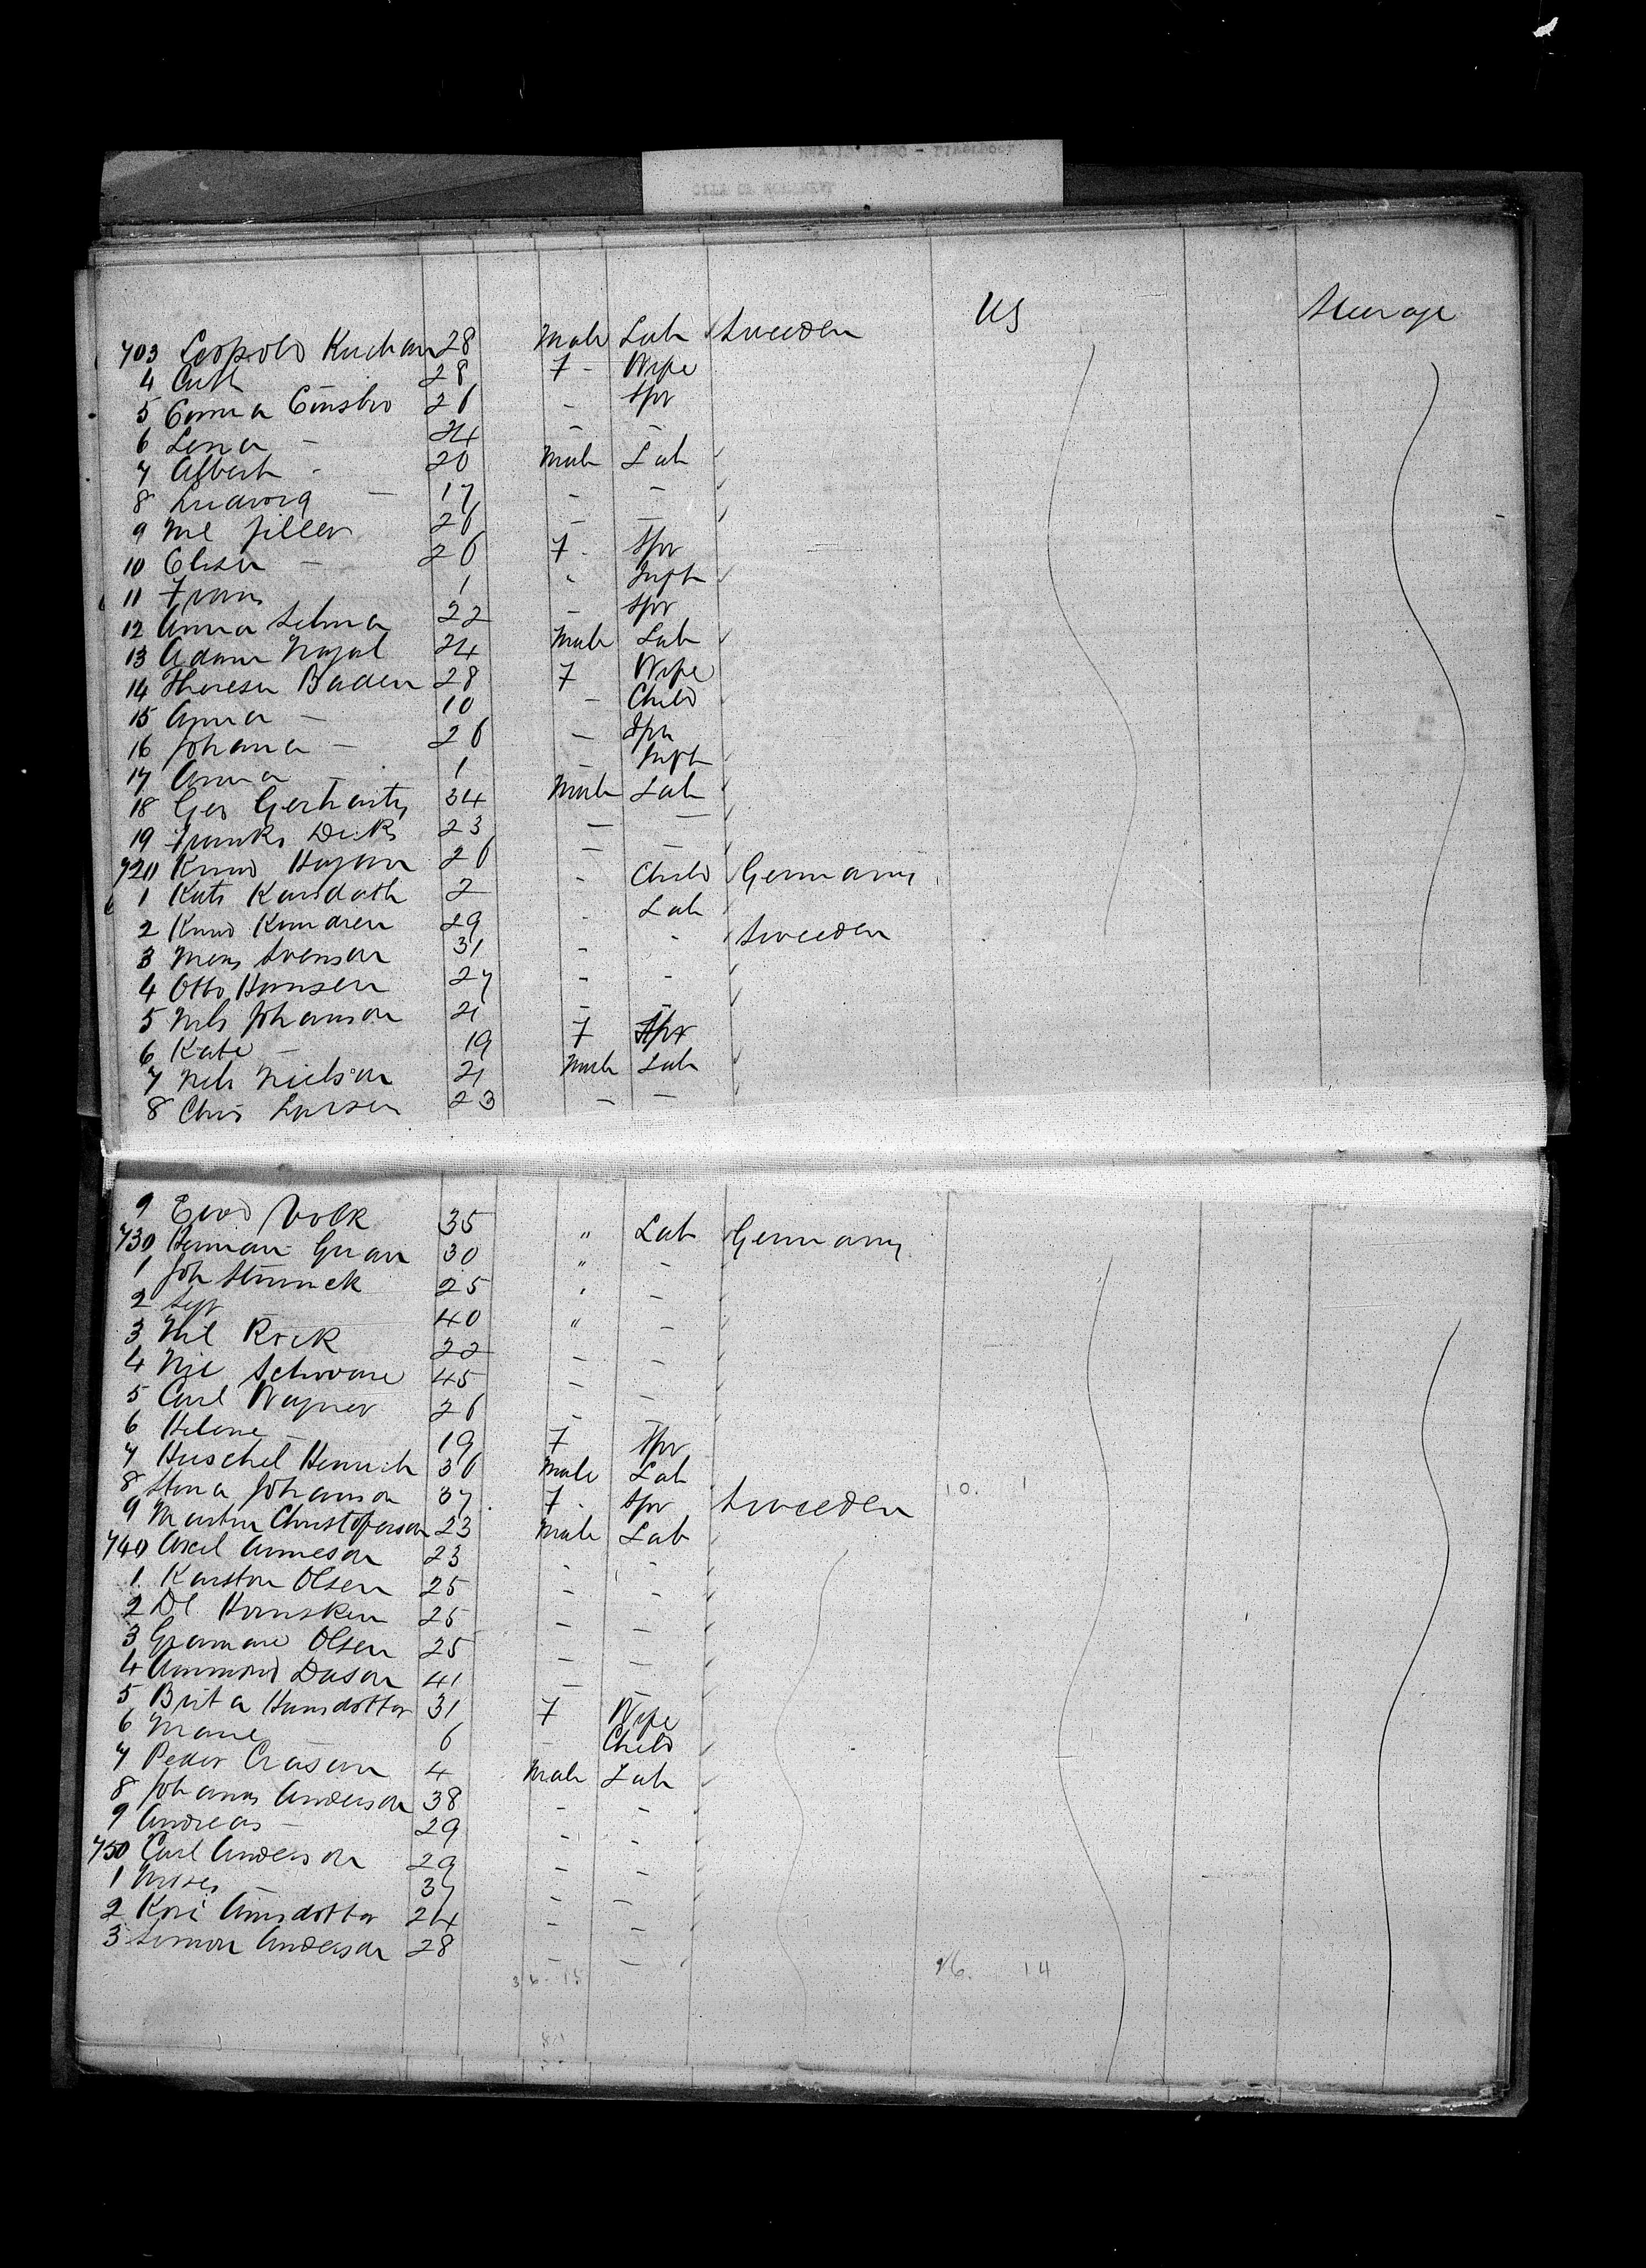 US Steerage
703 Leopold Kuchan 28 Male Lab Sweeden
4 Cath 28 F - Wife
5 Emma Einsbro 26 - Spr
6 Lena - 24 - -
7 Albert - 20 Male Lab
8 Ludwig - 17 - -
9 Wil Jiller 26 - -
10 Elisa - 26 F - Spr
11 Frans 1 " Inft
12 Anna Selma 22 - Spr
13 Adam Nagal 24 Male Lab
14 Theresa Baden 28 F Wife
15 Anna - 10 - Child
16 Johana - 26 - Spr
17 Anna - 1 - Inft
18 Geo Gerharty 34 Male Lab
19 Franks Diks 23 - -
720 Knud Hagan 26 - -
1 Kats Karsdoth 2 - Child Germany
2 Knud Knudsen 29 - Lab
3 Mons Svenson 31 - - Sweeden
4 Otto Hansen 27 - -
5 Nils Johanson 21 - -
6 Kate - 19 F Spr
7 Nils Nielson 21 Male Lab
8 Chris Larsen 23 - -
9 Ewd Volk 35 " Lab Germany
730 Herman Guan 30 " -
1 Joh Strunck 25 " -
2 40 " -
3 Wil Rock 22 - -
4 Nic Schwane 45 - -
5 Carl Wagner 26 - -
6 Helene - 19 F Spr
7 Huschel Heinrich 36 Male Lab
8 Stina Johanson 37 F - Spr Sweeden 10. 1
9 Martin Christoferson 23 Male Lab
740 Axel Anneson 23 - -
1 Karston Olsen 25 - -
2 Dl. Hansken 25 - -
3 Olsen 25 - -
4 Ammund Dason 41 - -
5 Brita Hansdotter 31 F Wife
6 Marie - 6 - Child
7 Peder Crason 4 Male Lab
8 Johans Anderson 38 - -
9 Andreas - 29 - -
750 Carl Anderson 29 - -
1 - 37 - -
2 Kari Amsdotter 24 - -
3 Simon Anderson 28 - -
36 - 15 96. 14